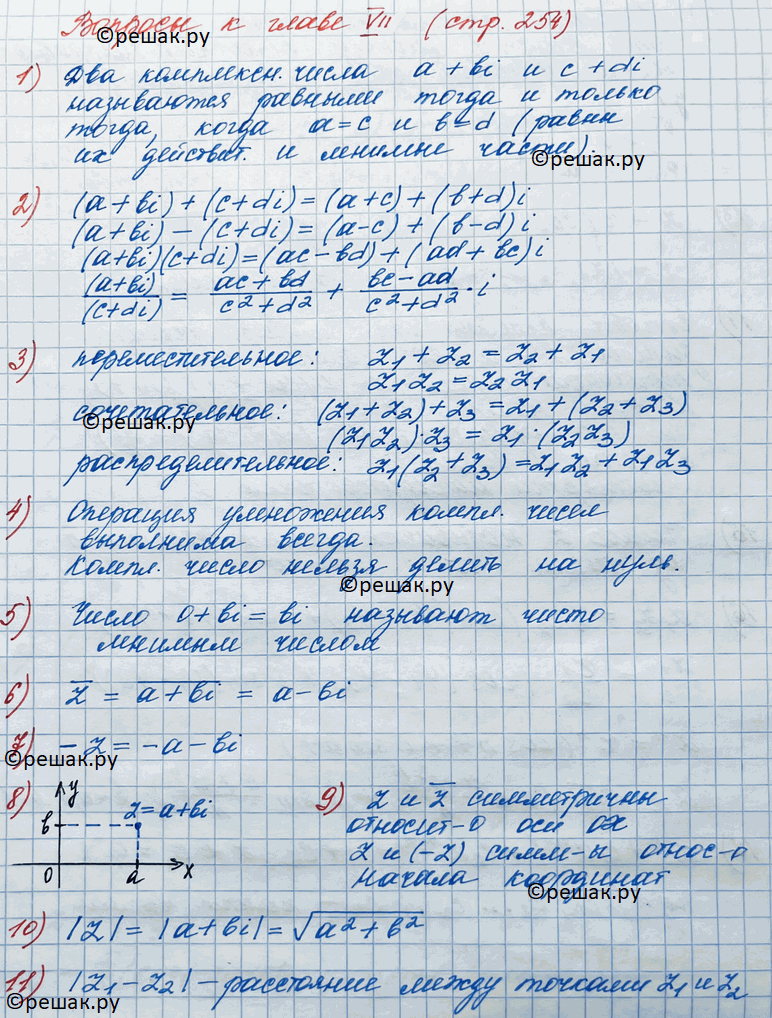 Вопросы к главе VII (стр. 254)
©решак.ру
1) Два комплексн. числа a + bi и c + di
называются равными тогда и только
тогда, когда a = c и b = d (равны
их действит. и мнимые части).
©решак.ру
2) (a + bi) + (c + di) = (a + c) + (b + d)i
(a + bi) − (c + di) = (a - c) + (b − d)i
(a + bi)(c + di) = (ac − bd) + (ad + bc)i
(a + bi)/(c + di) = (ac + bd)/(c² + d²) + (bc − ad)/(c² + d²) · i
3) переместительное: z₁ + z₂ = z₂ + z₁
z₁z₂ = z₂z₁
сочетательное: (z₁ + z₂) + z₃ = z₁ + (z₂ + z₃)
©решак.ру
(z₁z₂)·z₃ = z₁·(z₂z₃)
распределительное: z₁(z₂ + z₃) = z₁z₂ + z₁z₃
4) Операция умножения компл. чисел
выполнима всегда.
Компл. число нельзя делить на нуль.
©решак.ру
5) Число 0 + bi = bi называют чисто
мнимым числом
6) z̅ = a + bi̅ = a − bi
7) − z = −a − bi
©решак.ру
8) y
z = a + bi
b
0 a x
9) z и z̅ симметричны
относит-о оси OX
z и (−z) симм-ы относ-о
начала координат
©решак.ру
10) |z| = |a + bi| = √(a² + b²)
11) |z₁ − z₂| – расстояние между точками z₁ и z₂
©решак.ру